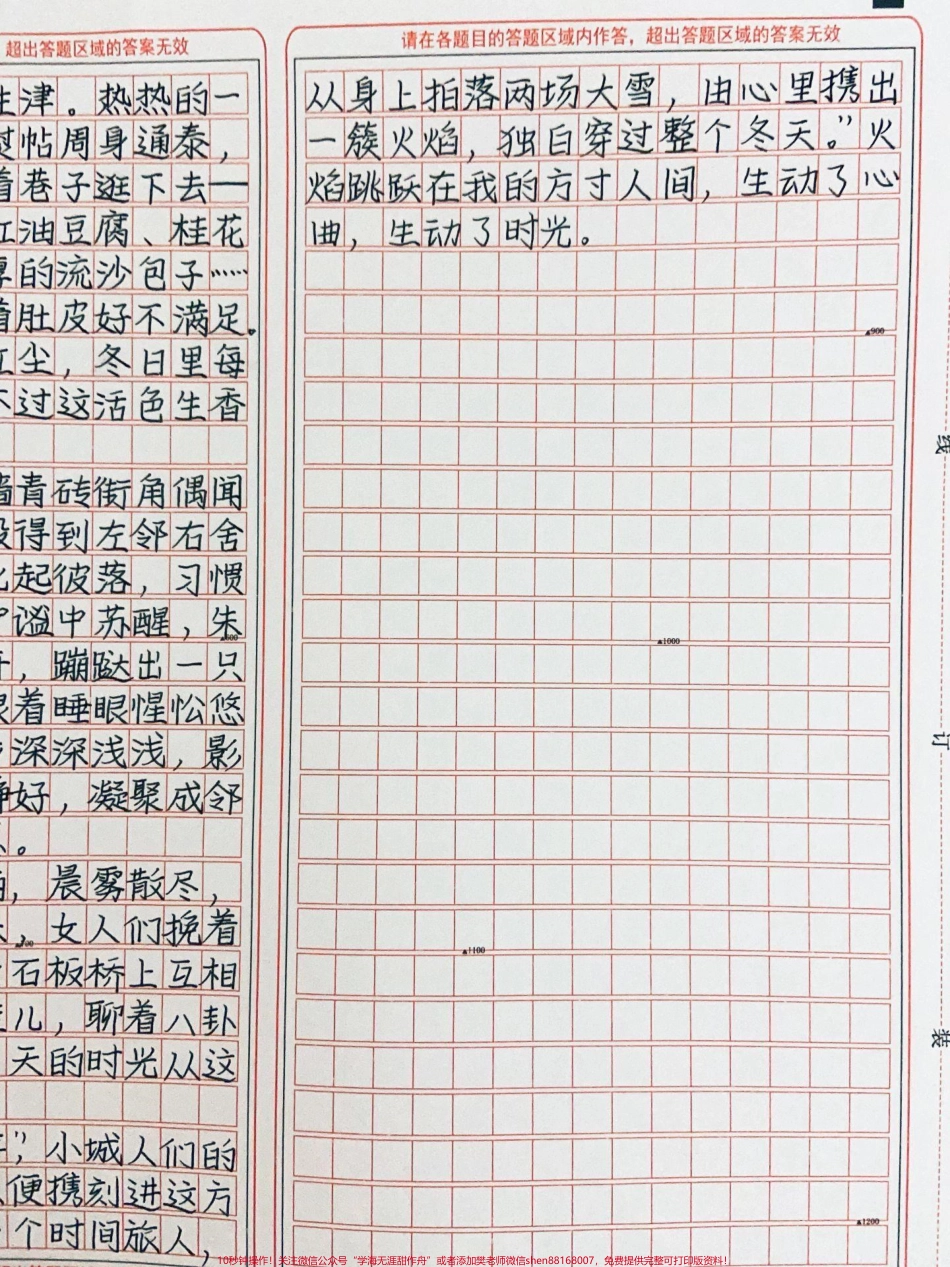 超出答题区域的答案无效
生津。热热的一
熨帖周身通泰，
着巷子逛下去——
红油豆腐、桂花
厚的流沙包子……
着肚皮好不满足。
红尘，冬日里每
不过这活色生香
墙青砖街角偶闻
般得到左邻右舍
此起彼落，习惯
静谧中苏醒，朱
▲600
开，蹦跶出一只
跟着睡眼惺忪悠
深深浅浅，影
静好，凝聚成邻
。
晨雾散尽，
，女人们挽着
▲700
石板桥上互相
儿，聊着八卦
天的时光从这
”，小城人们的
便携刻进这方
个时间旅人，
请在各题目的答题区域内作答，超出答题区域的答案无效
从身上拍落两场大雪，由心里携出
一簇火焰，独自穿过整个冬天。”火
焰跳跃在我的方寸人间，生动了心
曲，生动了时光。
▲900
▲1000
▲1100
▲1200
线
订
装
10秒钟操作!! 关注微信公众号“学海无涯甜作舟”或者添加樊老师微信shen88168007，免费提供完整可打印版资料！